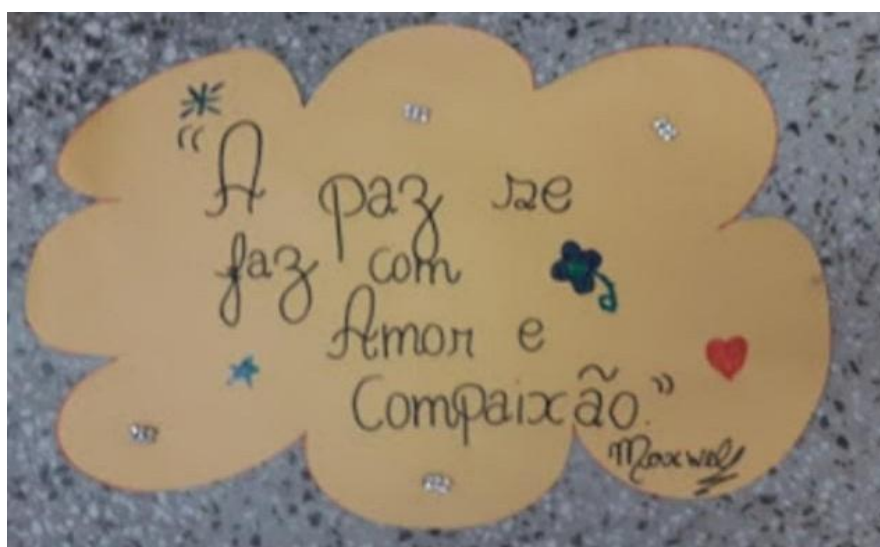 "A paz se
faz com
Amor e
Compaixão."
Maxwell